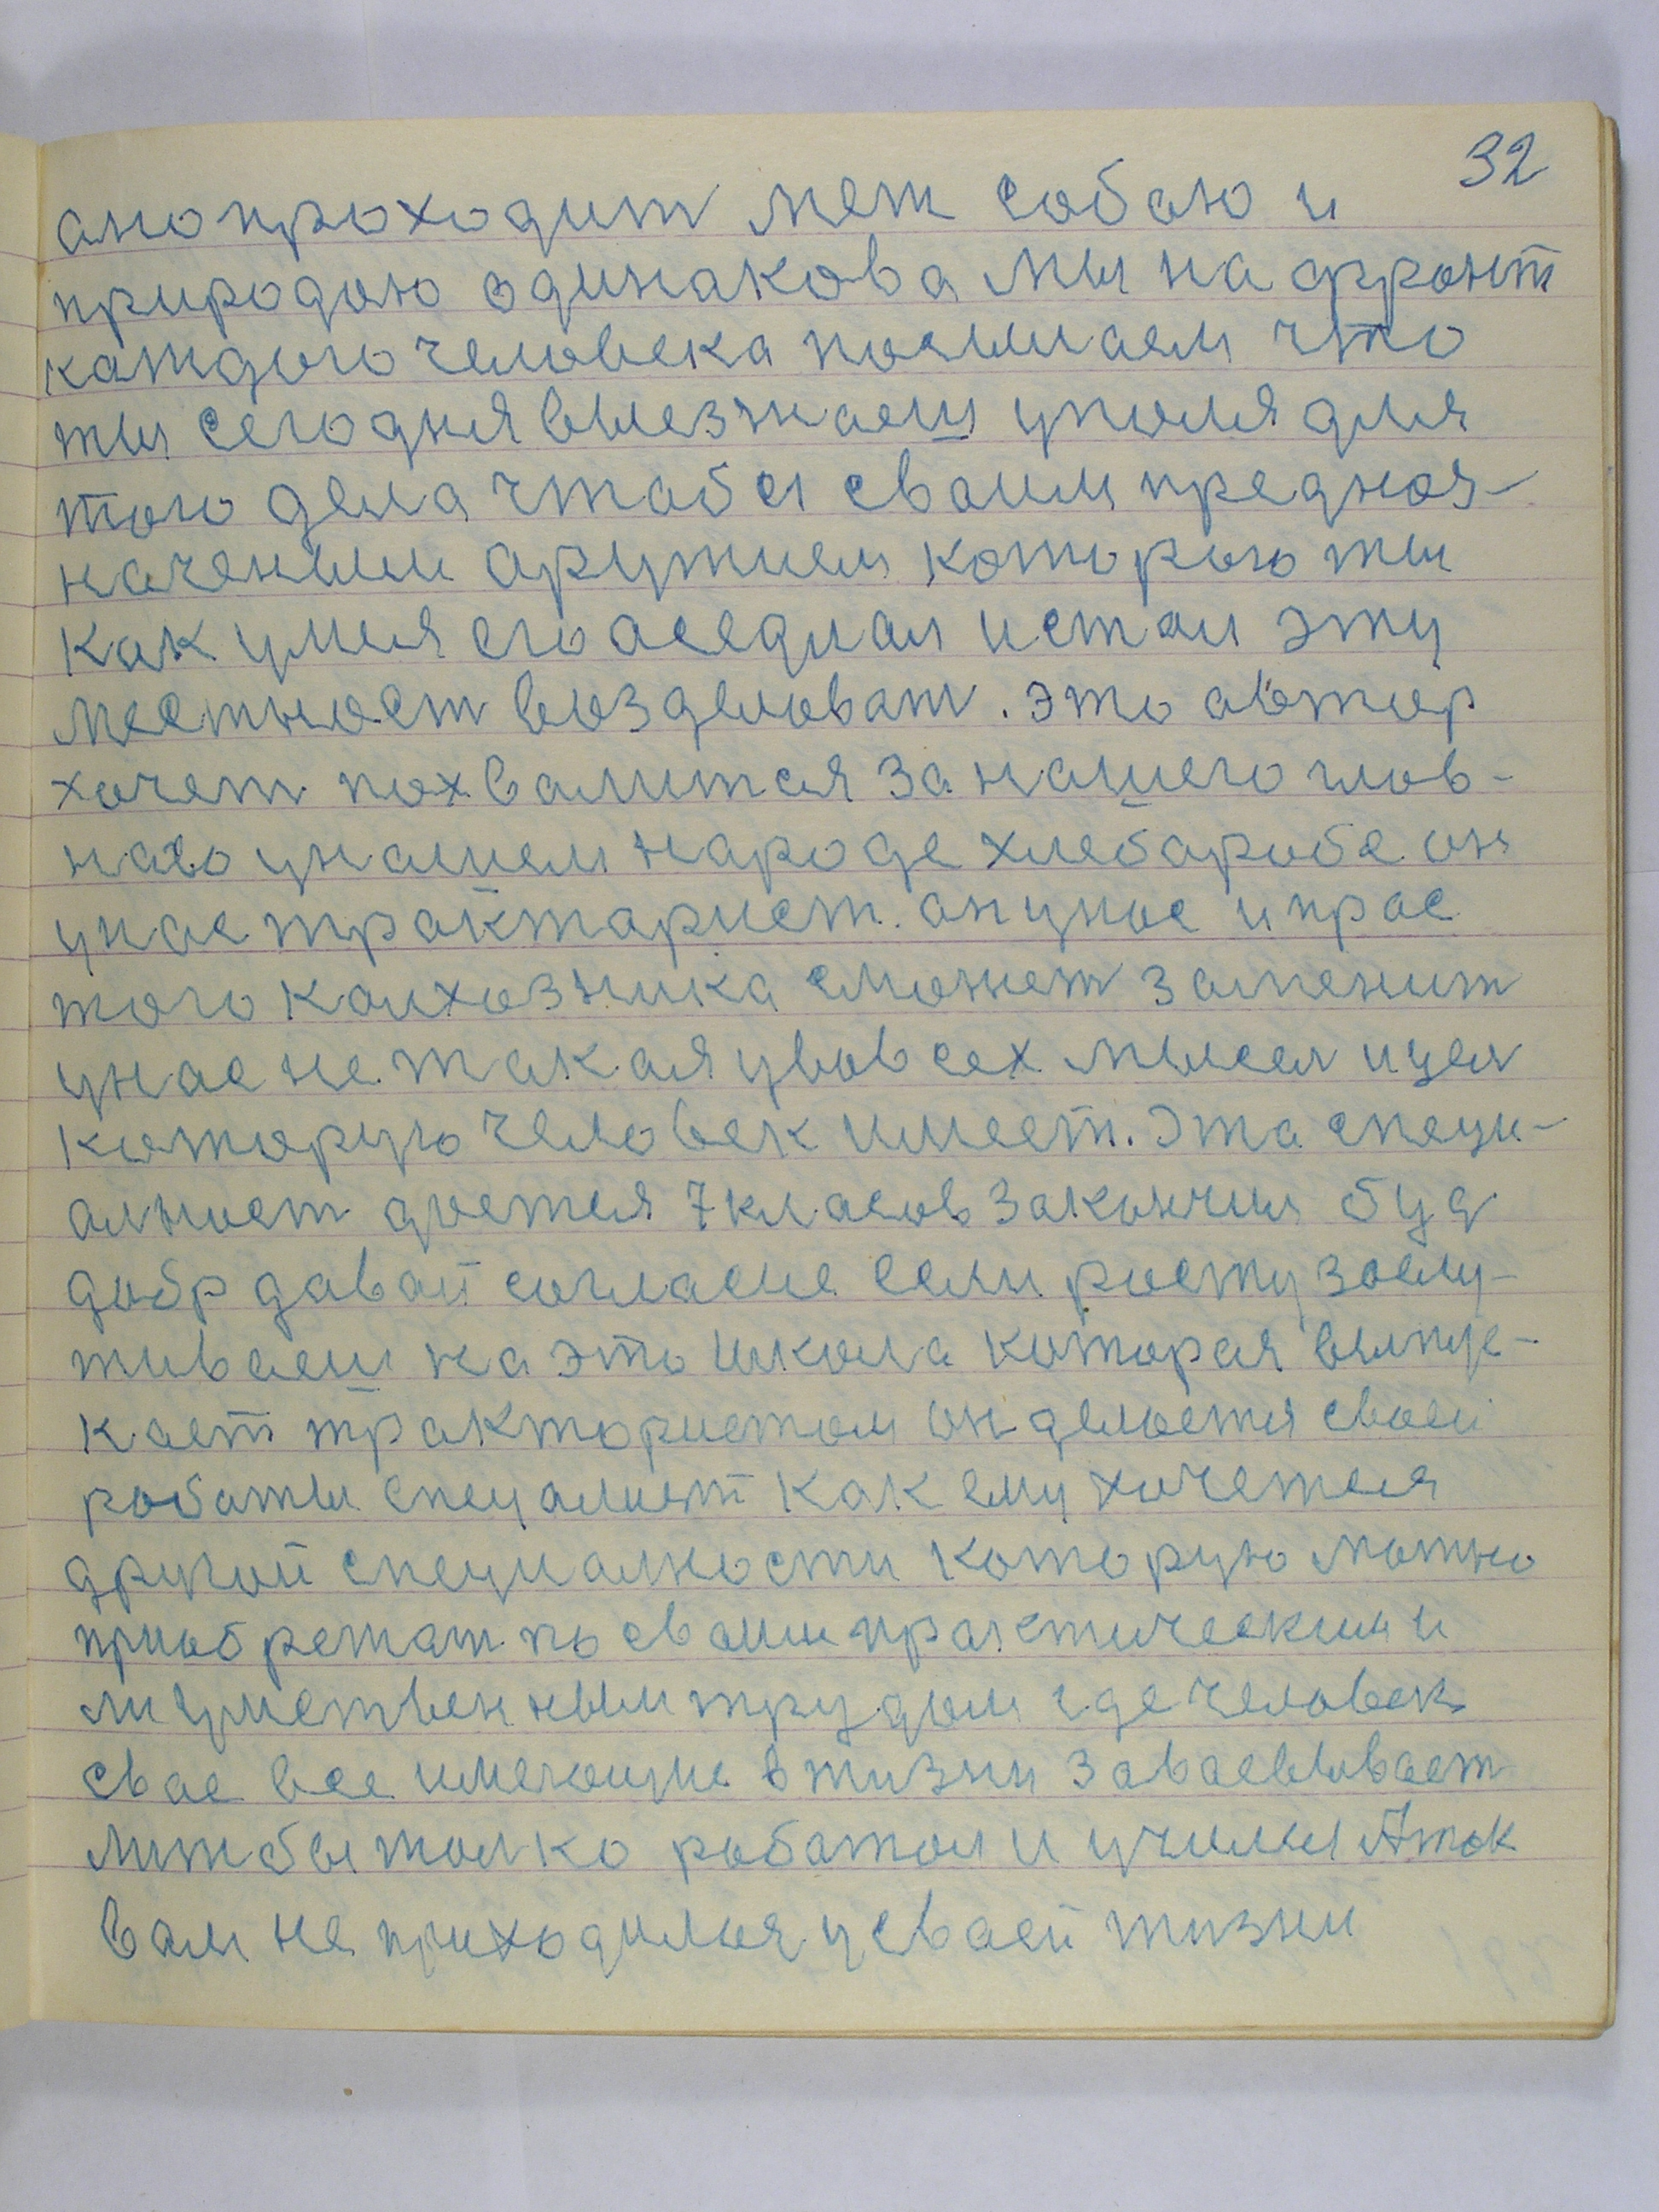 32
ано проходит меж собою и
природою одинакова мы на фронт
каждого человека посылаем что
ты сегодня выезжаеш уполя для
того дела чтобы сваим предноз-
начения аружием которого ты
как умея его аседлал и стал эту
местност возделоват. это автор
хочет похвалится за нашего глов-
наго унашем народе хлебаробе он
унас трактарист. он унас и прас
того колхозника сможет заменит
унас не такая увовсех мысел ицел
которую человек имеет. Эта специ-
алност дается 7 класов закончил буд
добр давай согласие если росту заслу-
живаеш на это школа которая выпус-
кает трактористом он делается своей
роботы специалист как ему хочется
другой специалности которую можно
приобретат по сваим практическим и
ли умственным трудом где человек
свае все имеющие в жизни заваевывает
лиш бы толко работал и учился Аток
вам не приходился усваей жизни